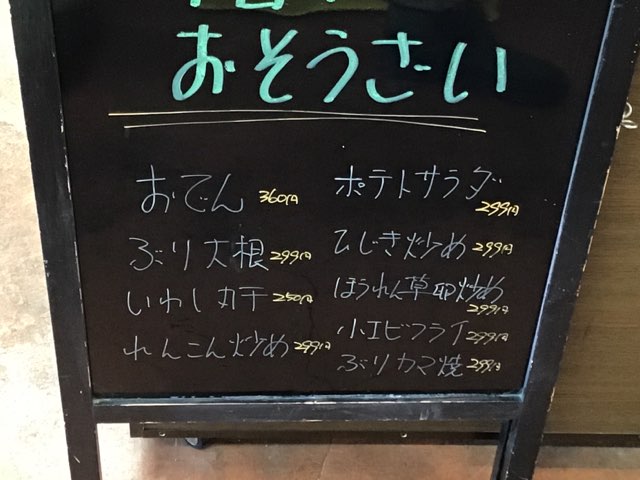 おそうざい
おでん 360円
ぶり大根 299円
いわし丸干 250円
れんこん炒め 299円
ポテトサラダ 299円
ひじき炒め 299円
ほうれん草卵炒め 299円
小エビフライ 299円
ぶりカマ焼 299円